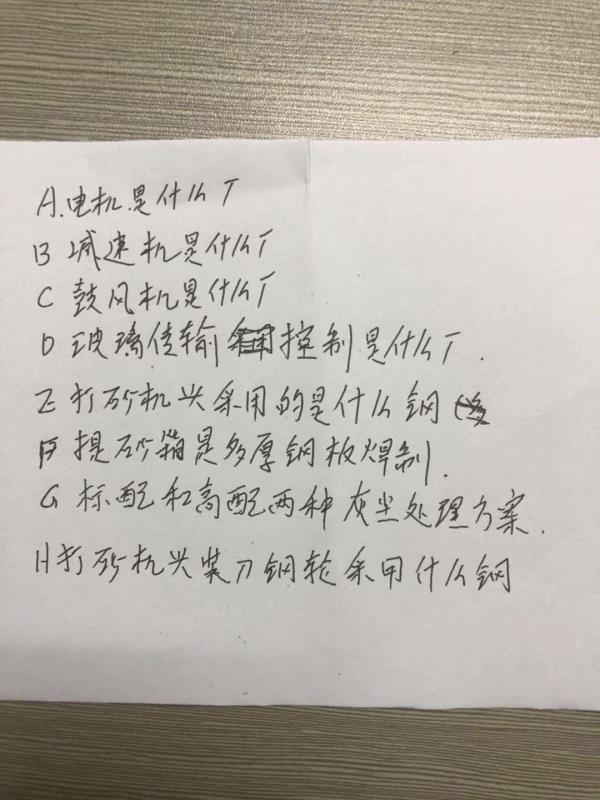 A.电机是什么厂
B 减速机是什么厂
C 鼓风机是什么厂
D 玻璃传输控制是什么厂.
E 打砂机头采用的是什么钢
F 提砂箱是多厚钢板焊制.
G 标配和高配两种灰尘处理方案.
H 打砂机头装刀钢轮采用什么钢